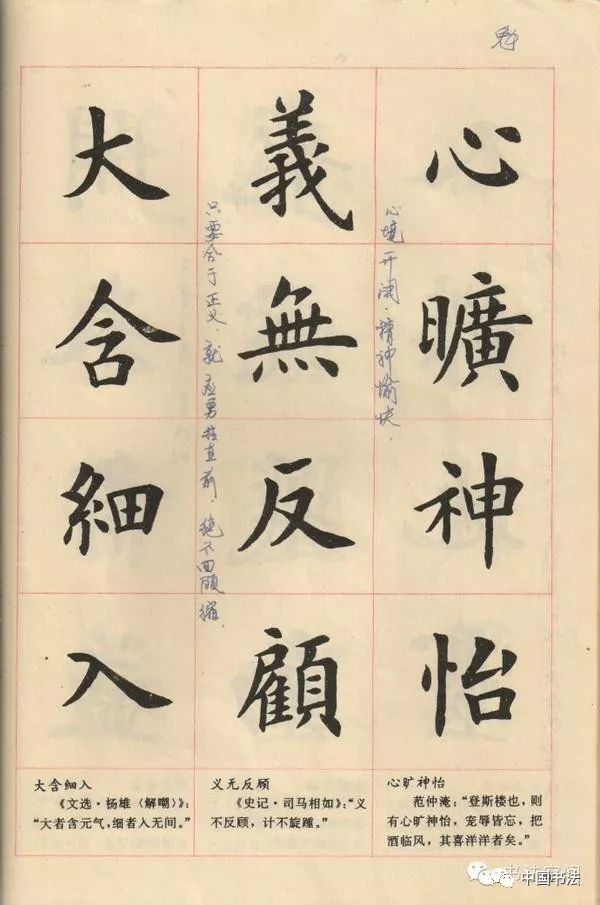 心曠神怡
心境开阔·精神愉快.
義無反顧
只要合于正义·就应勇往直前·绝不回顾
大含細入
心旷神怡
范仲淹：“登斯楼也，则
有心旷神怡，宠辱皆忘，把
酒临风，其喜洋洋者矣。”
义无反顾
《史记·司马相如》：“义
不反顾，计不旋踵。”
大含细入
《文选·杨雄（解嘲）》：
“大者含元气，细者入无间。”
中国书法